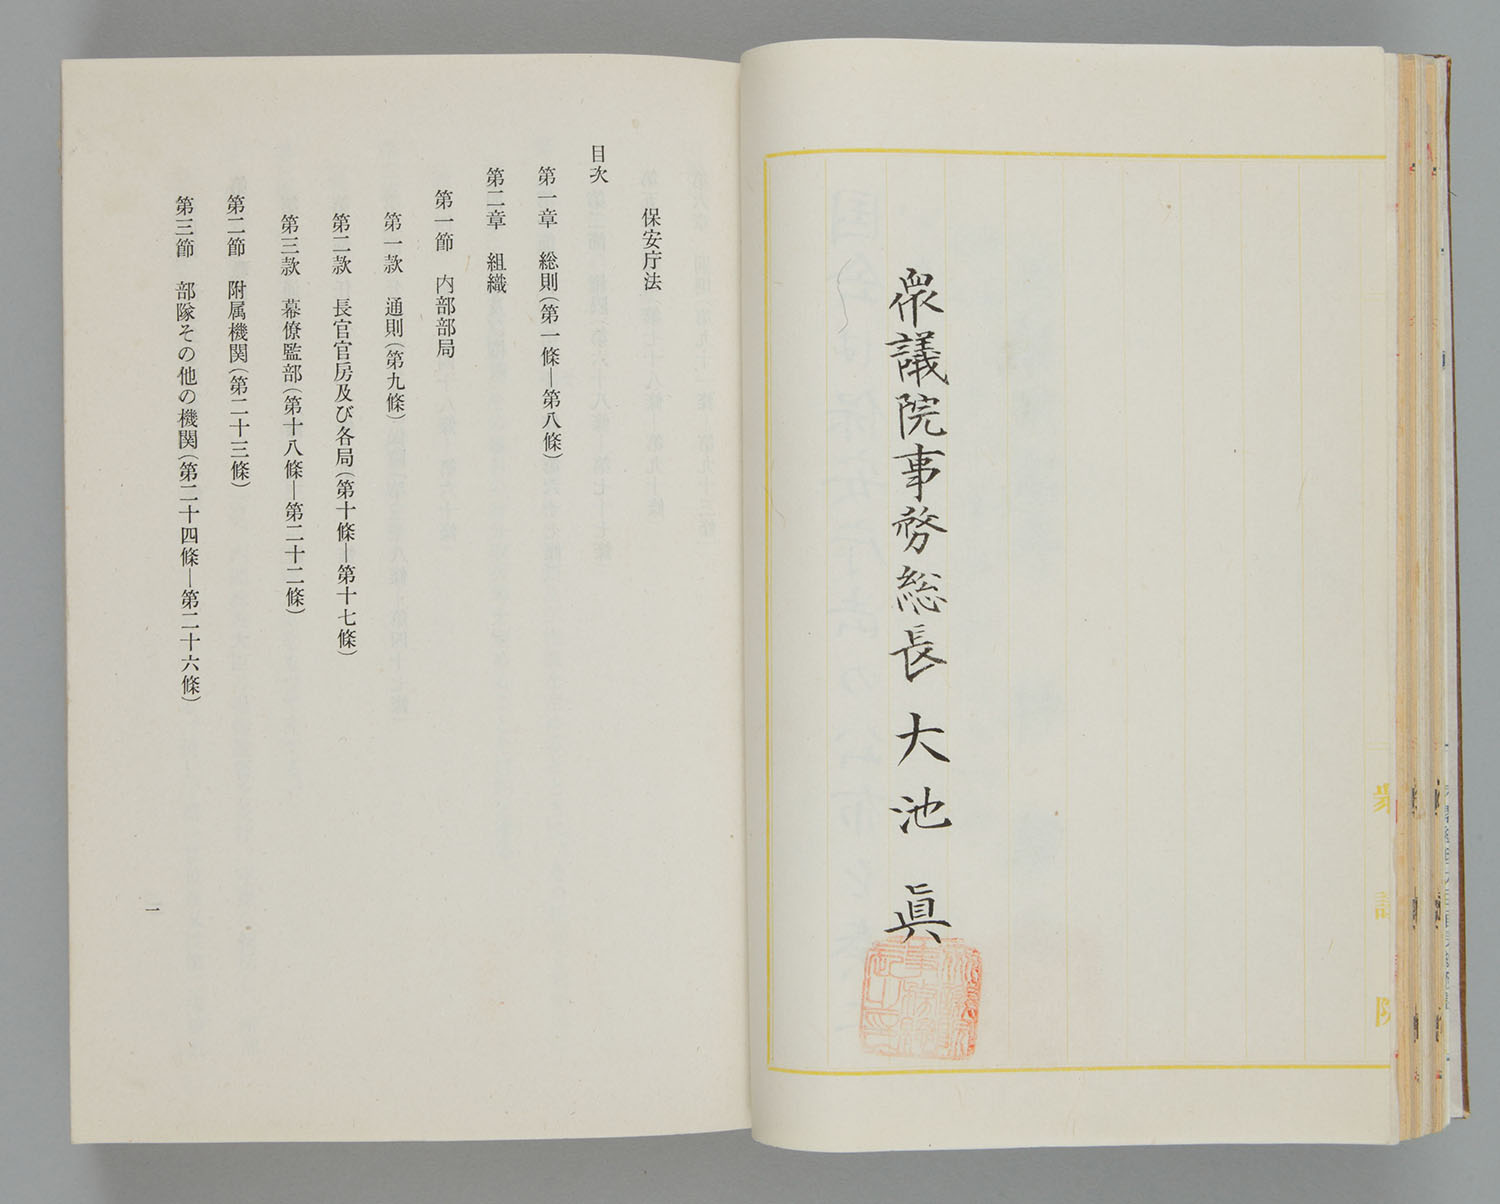 衆議院事務総長大池眞
衆議院
保安庁法
目次
第一章　総則(第一條―第八條)
第二章　組織
第一節　内部部局
第一款　通則(第九條)
第二款　長官官房及び各局(第十條―第十七條)
第三款　幕僚監部(第十八條―第二十二條)
第二節　附属機関(第二十三條)
第三節　部隊その他の機関(第二十四條―第二十六條)
一